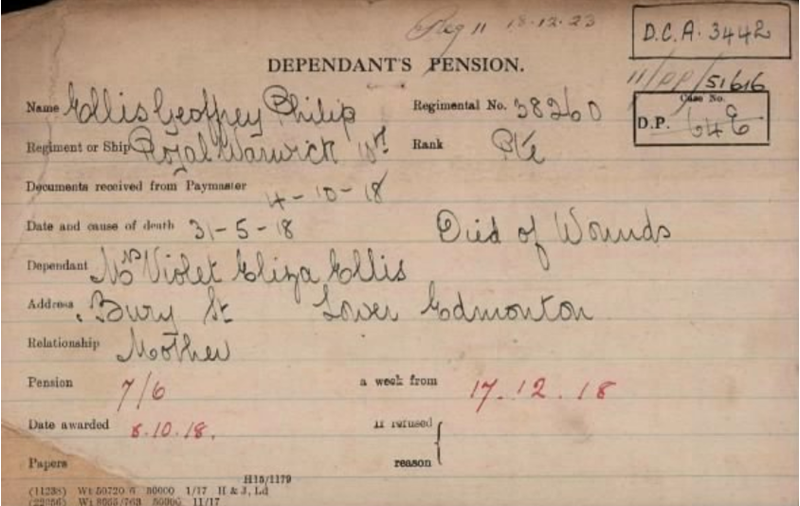 18.12.23
D.C.A. 3442
DEPENDANT'S PENSION.
11/DP/51616
Name Ellis Geoffrey Philip Regimental No. 38260
Case No.
D.P. 64E
Regiment or Ship Royal Warwick Rank Pte
Documents received from Paymaster 4-10-18
Date and cause of death 31-5-18 Died of Wounds
Dependant Mrs Violet Eliza Ellis
Address Bury St Lower Edmonton
Relationship Mother
Pension 7/6 a week from 17.12.18
Date awarded 8.10.18. If refused
Papers reason
H15/1179
(11238) Wt 50720 6 50000 1/17 H & J, Ld
50000 11/17